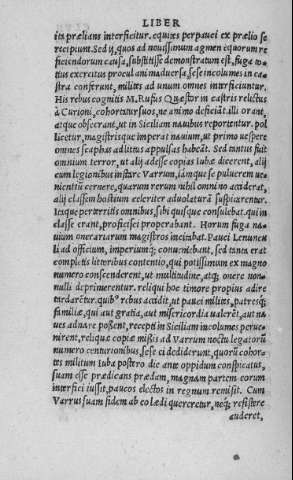 LIBER
ita prælians interficitur. equites perpauci ex prælio se
recipiunt. Sed ij, quos ad nouissimum agmen equorum re
ficiendorum causa, substitisse demonstratum est, fuga to
tius exercitus procul animaduersa, sese incolumes in ca
stra conferunt, milites ad unum omnes interficiuntur.
His rebus cognitis M. Rufus Quæstor in castris relictus
à Curioni, cohortatur suos, ne animo deficiāt. illi orant,
atque obsecrant, ut in Siciliam nauibus reportentur. pol
licetur, magistrisque imperat nauium, ut primo uespere
omnes scaphas ad litus appulsas habeāt. Sed tantus fuit
omnium terror, ut alij adesse copias Iubæ dicerent, alij
cum legionibus instare Varrum, iāmque se puluerem ue
nientiū cernere, quarum rerum nihil omnino acciderat,
alij classem hostium celeriter aduolaturā suspicarentur.
Itaque perterritis omnibus, sibi quisque consulebat. qui in
classe erant, proficisci properabant. Horum fuga na-
uium onerariarum magistros incitabat. Pauci Lenuncu
li ad officium, imperiumq; conueniebant, sed tanta erat
completis littoribus contentio, qui potissimum ex magno
numero conscenderent, ut multitudine, atq; onere non-
nulli deprimerentur. reliqui hoc timore propius adire
tardarētur. quibus rebus accidit, ut pauci milites, patresq;
familiæ, qui aut gratia, aut misericordia ualerēt, aut na-
ues adnare possent, recepti in Siciliam incolumes perue-
nirent, reliquæ copiæ missis ad Varrum noctu legatorū
numero centurionibus, sese ei dediderunt. quorū cohor-
tes militum Iuba postero die ante oppidum conspicatus,
suam esse prædicans prædam, magnam partem eorum
interfici iussit, paucos electos in regnum remisit. Cum
Varrus suam fidem ab eo lædi quereretur, neq; resistere
auderet,